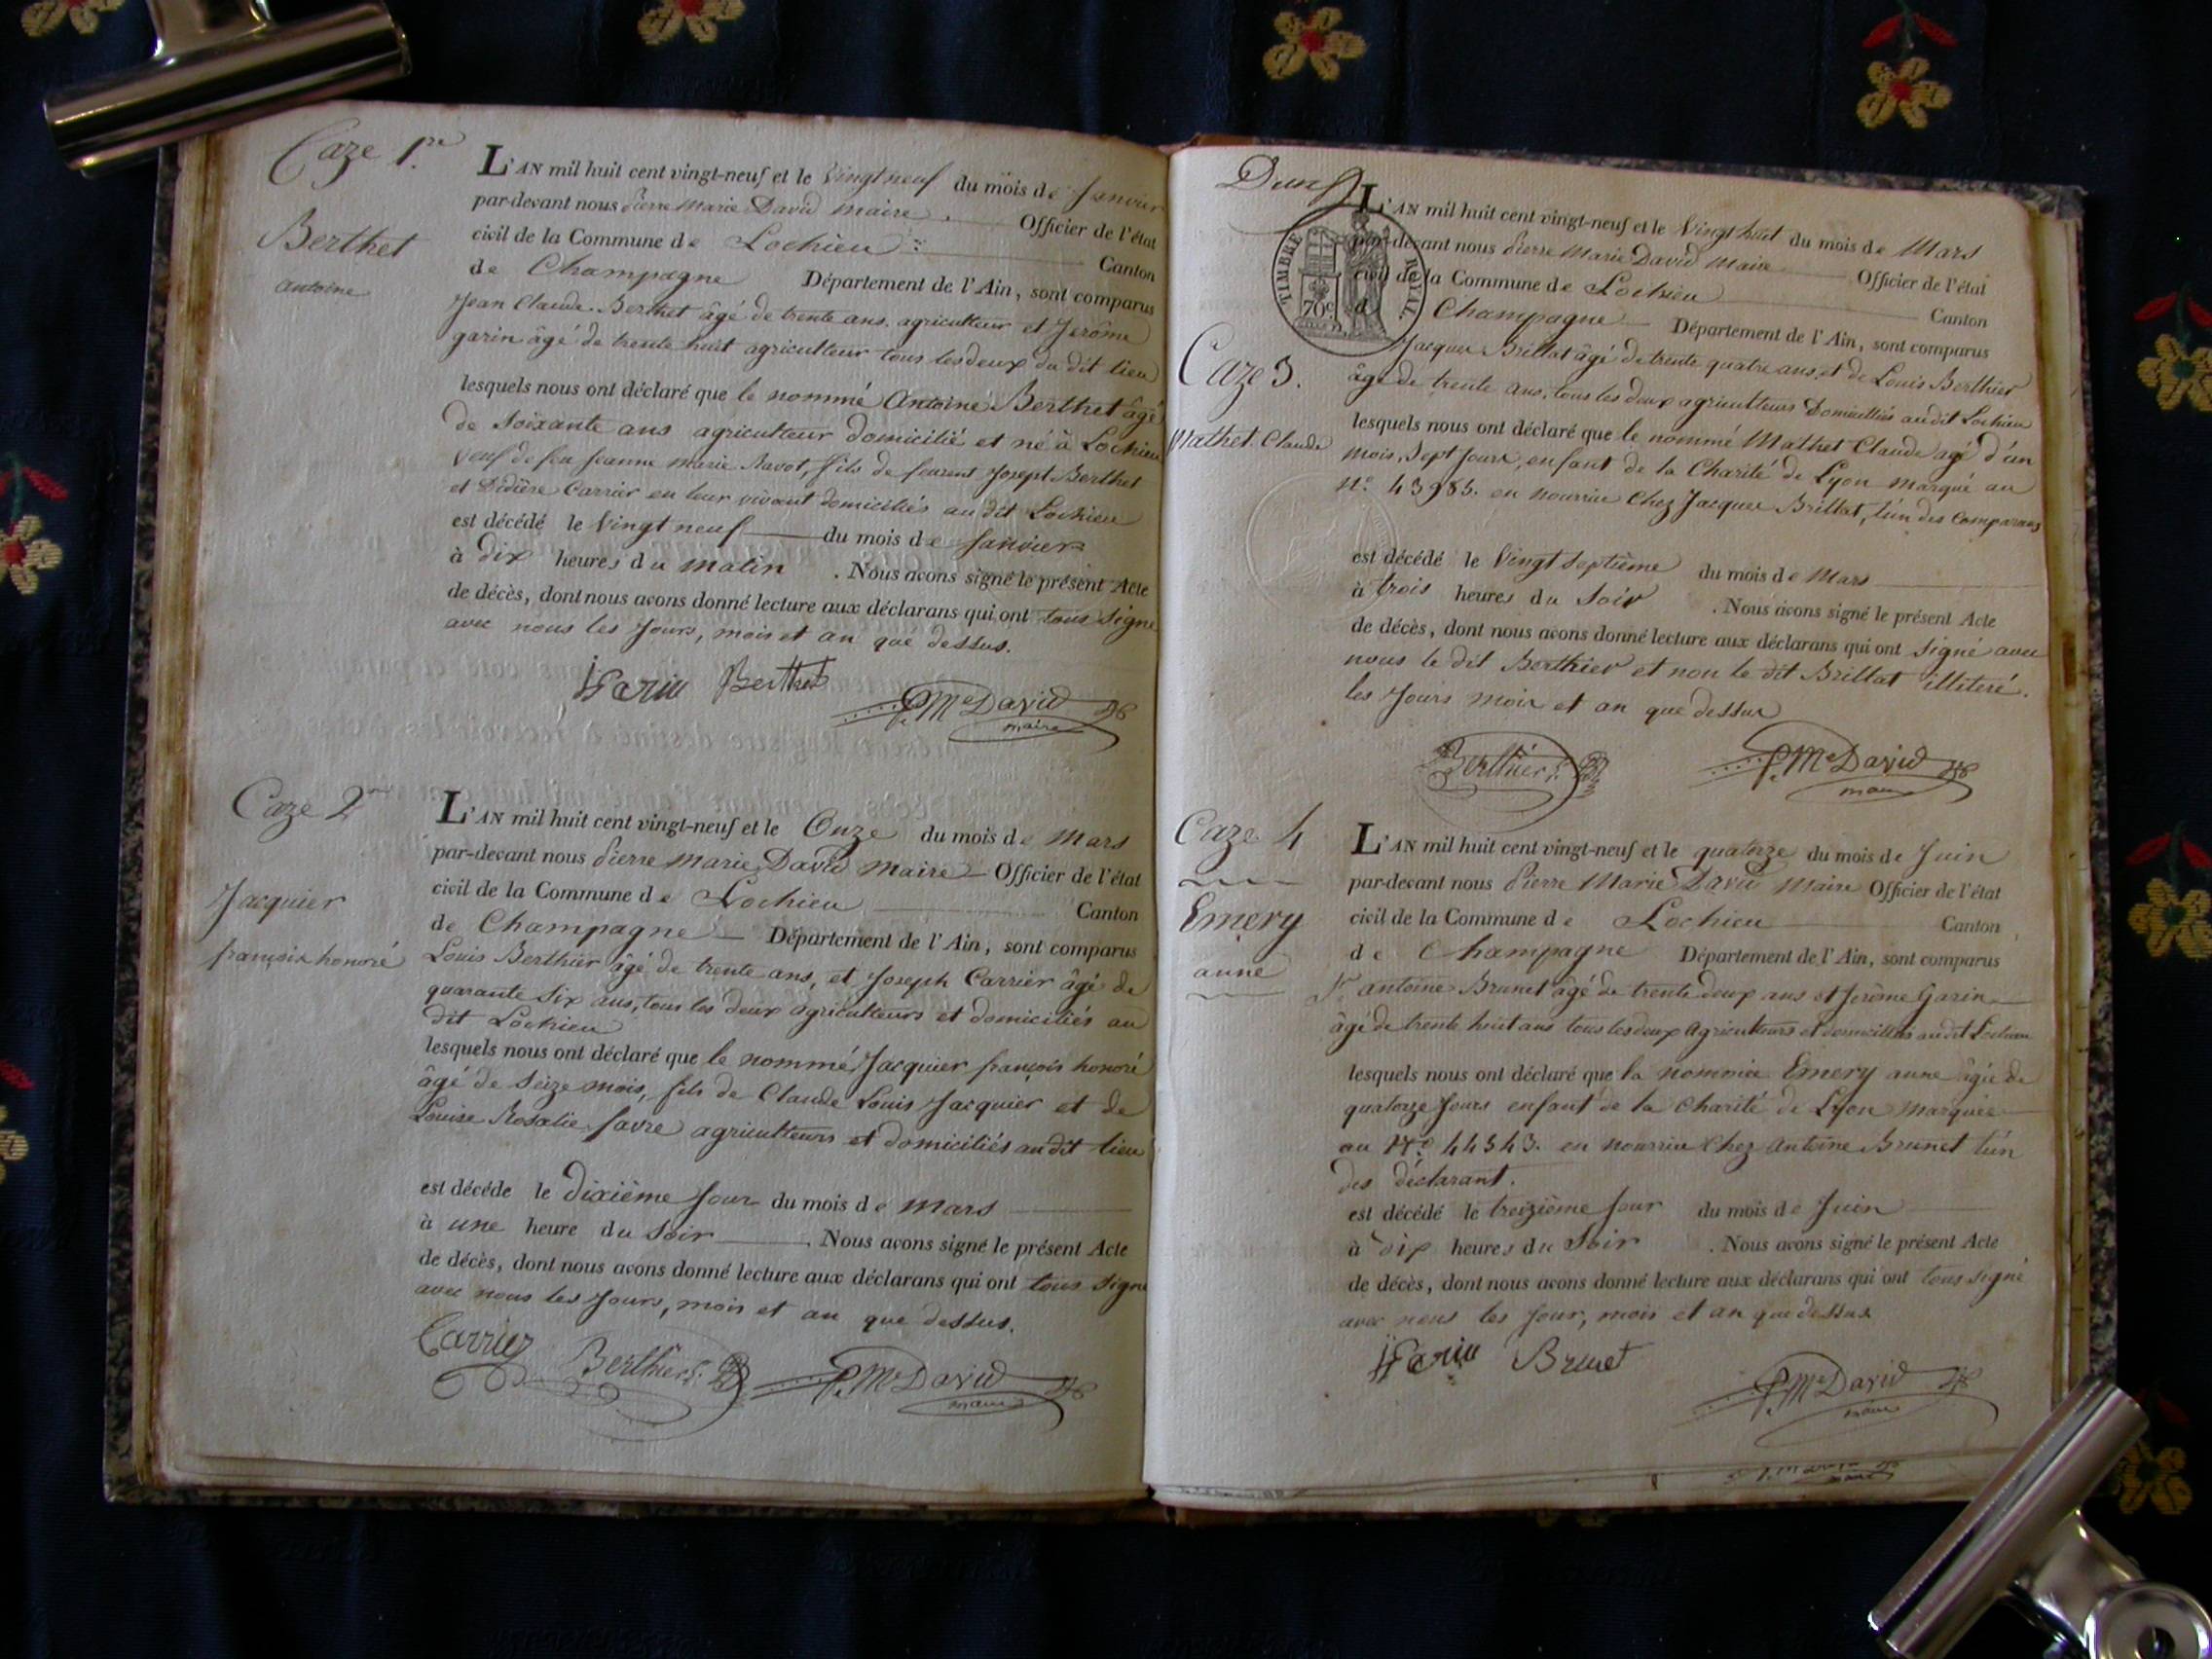 Caze 1.re
Berthet
antoine
L'AN mil huit cent vingt-neuf et le Vingt neuf du mois de Janvier
par-devant nous Pierre Marie David maire. Officier de l'état
civil de la Commune de Lochieu Canton
de Champagne Département de l'Ain, sont comparus
Jean Claude Berthet âgé de trente ans. agriculteur et Jerôme
garin âgé de trente huit agriculteur tous les deux du dit lieu
lesquels nous ont déclaré que le nommé Antoine Berthet âgé
de Soixante ans agriculteur domicilié et né à Lochieu
Veuf de feu Jeanne Marie Ravot, fils de feurent Joseph Berthet
et Didière Carrier en leur vivant domiciliés au dit Lochieu
est décédé le Vingt neuf du mois de Janvier
à dix heures du matin . Nous avons signé le présent Acte
de décès, dont nous avons donné lecture aux déclarans qui ont tous Signé
avec nous les Jours, mois et an que dessus.
Garin Berthet
P. Me David
maire
Caze 2
Jacquier
françois honoré
L'AN mil huit cent vingt-neuf et le Onze du mois de Mars
par-devant nous Pierre Marie David Maire Officier de l'état
civil de la Commune de Lochieu Canton
de Champagne Département de l'Ain, sont comparus
Louis Berthier âgé de trente ans, et Joseph Carrier âgé de
quarante Six ans, tous les deux agriculteurs et domiciliés au
dit Lochieu
lesquels nous ont déclaré que le nommé Jacquier françois honoré
âgé de Seize mois, fils de Claude Louis Jacquier et de
Louise Rosalie favre agriculteurs et domiciliés audit lieu
est décédé le dixième Jour du mois de Mars
à une heure du Soir . Nous avons signé le présent Acte
de décès, dont nous avons donné lecture aux déclarans qui ont tous Signé
avec nous les Jours, mois et an que dessus.
Carrier Berthier P. Me David
maire
TIMBRE ROYAL.
70c.
Caze 3.
Mathet Claude
L'AN mil huit cent vingt-neuf et le Vingt huit du mois de Mars
par-devant nous Pierre Marie David Maire Officier de l'état
civil de la Commune de Lochieu Canton
de Champagne Département de l'Ain, sont comparus
Jacques Brillat âgé de trente quatre ans, et de Louis Berthier
âgé de trente ans, tous les deux agriculteurs Domiciliés audit Lochieu
lesquels nous ont déclaré que le nommé Mathet Claude agé d'un
mois, Sept Jours, enfant de la Charité de Lyon marqué au
n.o 43985. en nourrice Chez Jacques Brillat, l'un des Comparans
est décédé le Vingt Septième du mois de Mars
à trois heures du Soir . Nous avons signé le présent Acte
de décès, dont nous avons donné lecture aux déclarans qui ont Signé avec
nous le dit Berthier et non le dit Brillat illiteré.
les Jours mois et an que dessus
Berthier P. Me David
maire
Caze 4
Emery
anne
L'AN mil huit cent vingt-neuf et le quatorze du mois de Juin
par-devant nous Pierre Marie David Maire Officier de l'état
civil de la Commune de Lochieu Canton
de Champagne Département de l'Ain, sont comparus
antoine Brunet agé de trente deux ans et Jerôme Garin
âgé de trente huit ans tous les deux Agriculteurs et domiciliés audit Lochieu
lesquels nous ont déclaré que la nommée Emery anne âgée de
quatorze Jours enfant de la Charité de Lyon Marquée
au N.o 44343. en nourrice Chez Antoine Brunet l'un
des déclarant.
est décédé le treizième Jour du mois de Juin
à dix heures du Soir . Nous avons signé le présent Acte
de décès, dont nous avons donné lecture aux déclarans qui ont tous Signé
avec nous les Jour, mois et an que dessus
Garin Brunet
P. Me David
maire